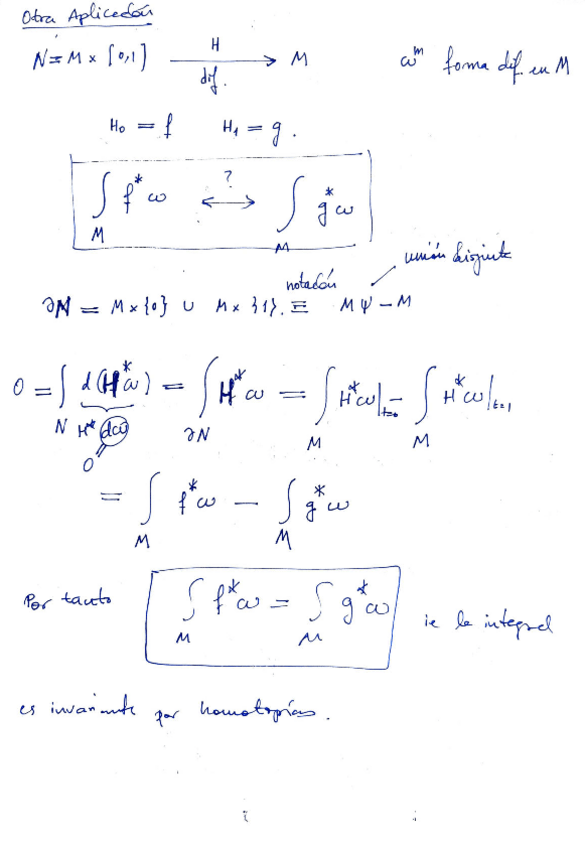 Otra Aplicación
N = M × [0,1] —H→ dif. M ω^m forma dif. en M
H₀ = f H₁ = g.
∫_M f*ω ←?→ ∫_M g*ω
unión disjunta
notación
∂N = M × {0} ∪ M × {1}. ≡ M ⊎ −M
0 = ∫_N d(H*ω) = ∫_∂N H*ω = ∫_M H*ω|_{t=0} − ∫_M H*ω|_{t=1}
H* dω
0
= ∫_M f*ω − ∫_M g*ω
Por tanto ∫_M f*ω = ∫_M g*ω ie la integral
es invariante por homotopías.